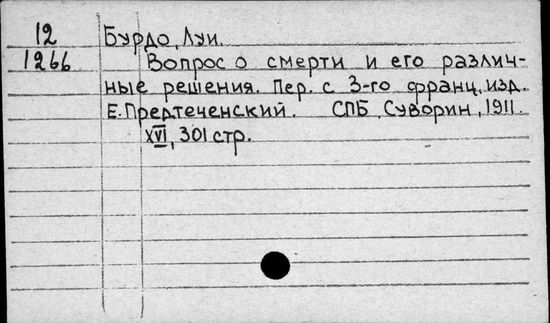 12 Бурдо, Луи.
1266 Вопрос о смерти и его различ-
ные решения. Пер. с 3-го франц. изд.
Е. Предтеченский. СПБ, Суворин, 1911.
XVI, 301 стр.